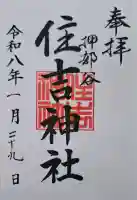 奉拝
押部谷
住吉神社
令和八年一月二十九日